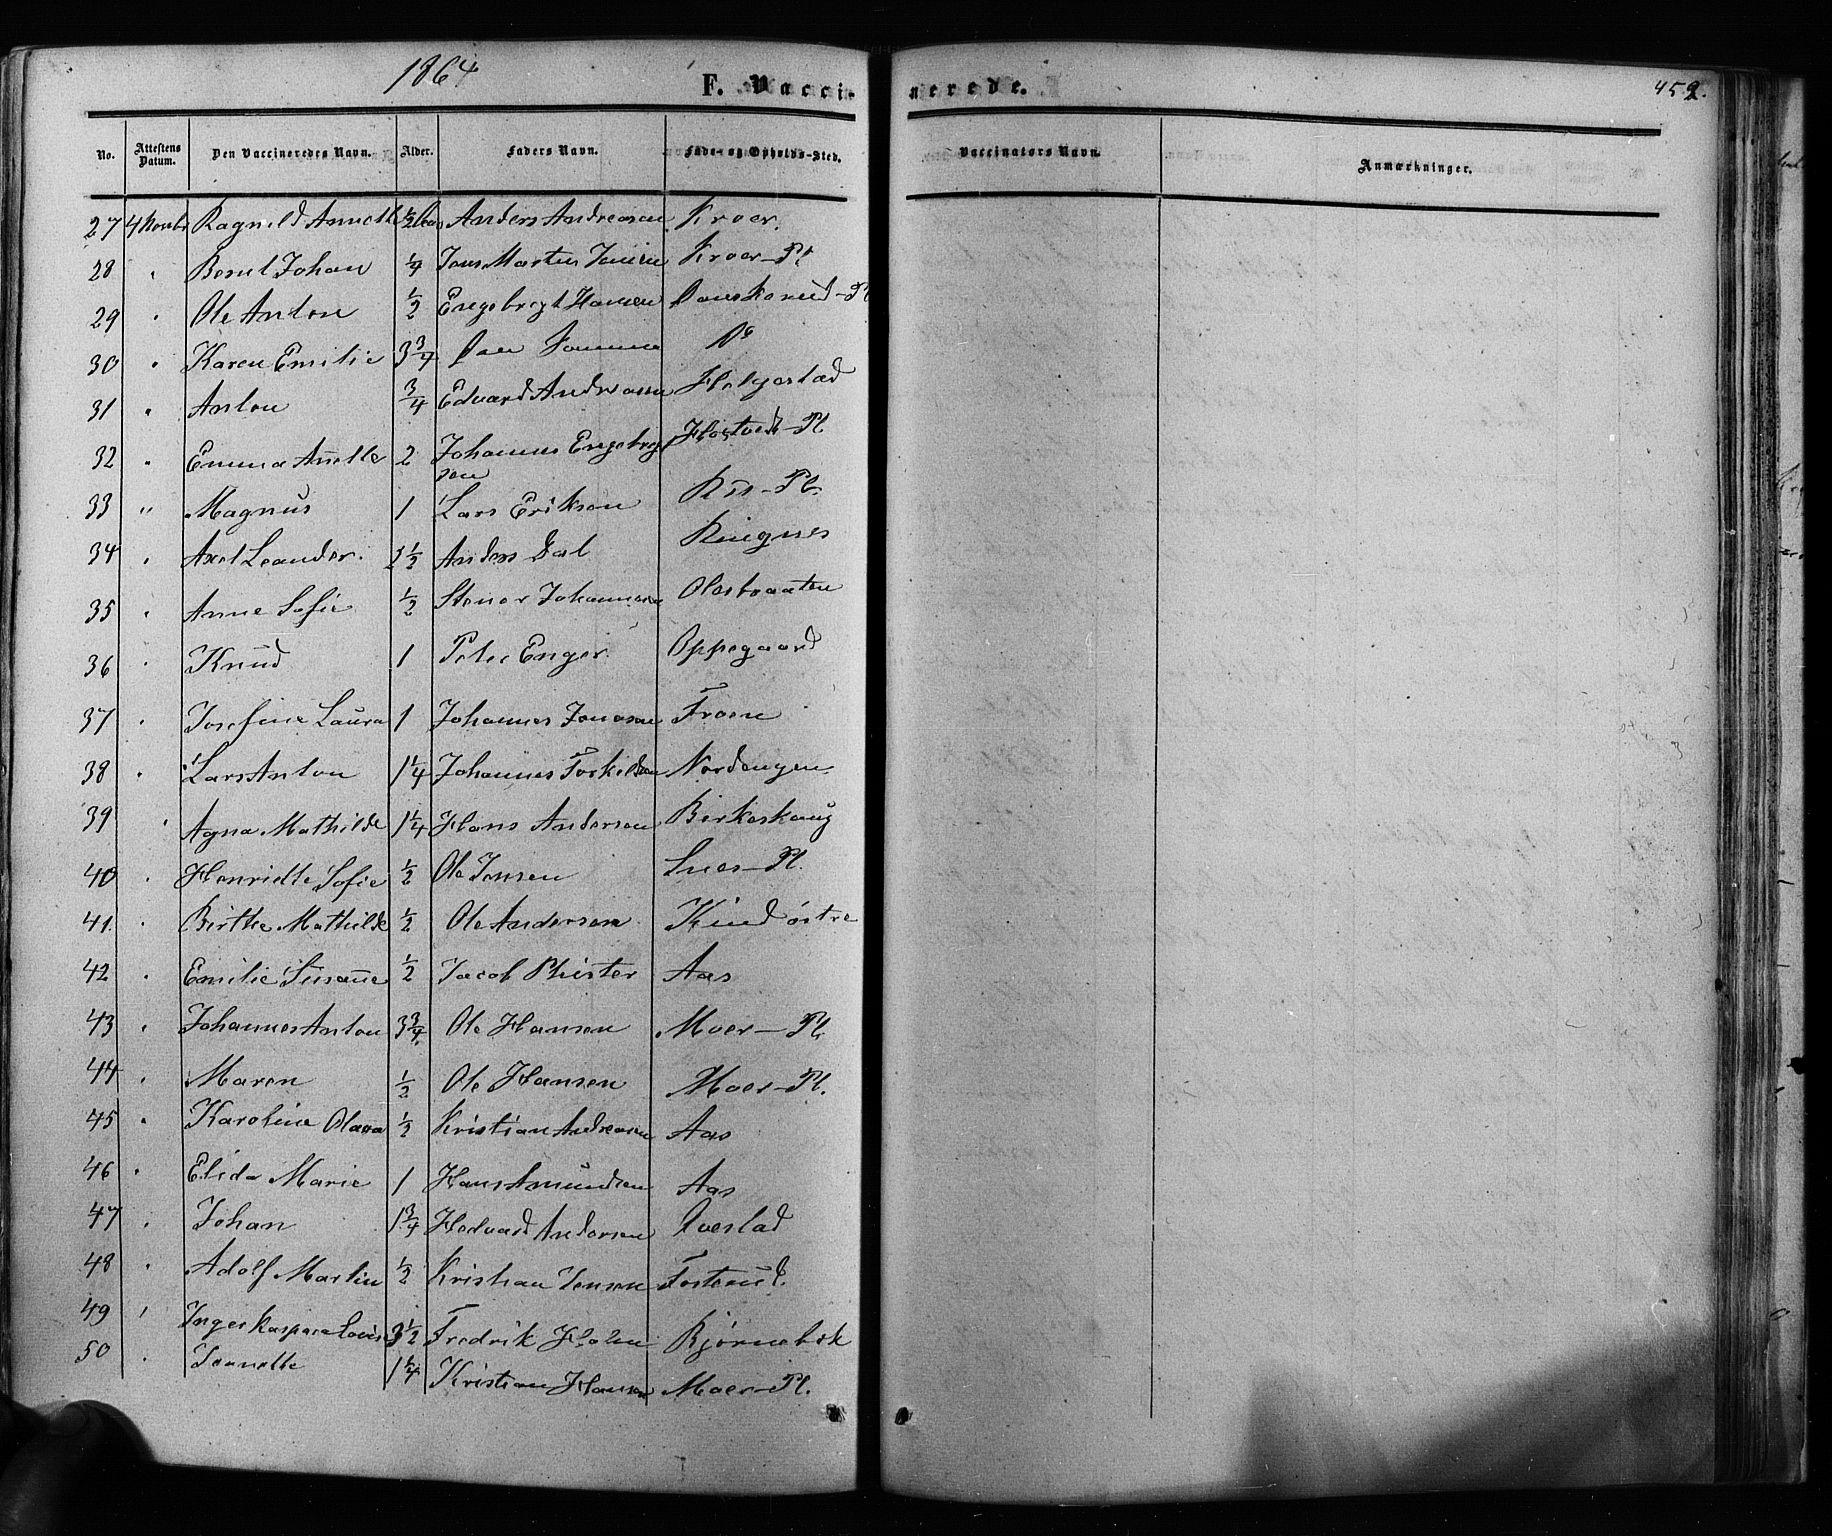 1864
F. Vacci- nerede. 452.
No. Attestens Datum. Den Vaccineredes Navn. Alder. Faders Navn. Føde- og Opholds-Sted. Vaccinators Navn. Anmærkninger.
27 4 Novbr Ragnild Annette 1/2 Aar Anders Andreasen Kroer.
28 " Bernt Johan 1/4 Jens Martin Jensen Kroer-Pl
29 " Ole Anton 1/2 Engebregt Hansen Danskerud-Pl
30 " Karen Emilie 3 3/4 Den Samme Do
31 " Anton 3/4 Edvard Andreasen Holgestad
32 " Emma Anette 2 Johannes Engebrg
sen Hostvedt-Pl
33 " Magnus 1 Lars Eriksen Riis-Pl.
34 " Axel Leander. 1 1/2 Anders Dal Ringnes
35 " Anne Sofie 1/2 Stener Johannesen Olesbraaten
36 " Knud 1 Peter Enger. Oppegaard
37 " Josefine Laura 1 Johannes Jonasen Froen
38 " Lars Anton 1 1/4 Johannes Torkildsen Nordengen
39 " Agna Mathilde 1 1/4 Hans Andersen Birkeskaug
40 " Henriette Sofie 1/2 Ole Jensen Snes-Pl.
41. " Birthe Mathilde 1/2 Ole Andersen Kind østre
42 " Emilie Susanne 1/2 Jacob Phister Aas
43 " Johannes Anton 3 3/4. Ole Hansen Moer-Pl.
44 " Maren 1/2 Ole Hansen Moer-Pl.
45 " Karoline Olava 1/2 Kristian Andreasen Aas
46 " Elida Marie 1 Hans Amundsen Aas
47 " Johan 1 3/4 Hedvard Andersen Overstad
48 " Adolf Martin 1/2 Kristian Jensen Fosterud.
49 " Inger Kaspara Lovise 3 1/2 Fredrik Holen Bjørnebek
50 " Jeanette 1 1/4 Kristian Hansen Moer-Pl.